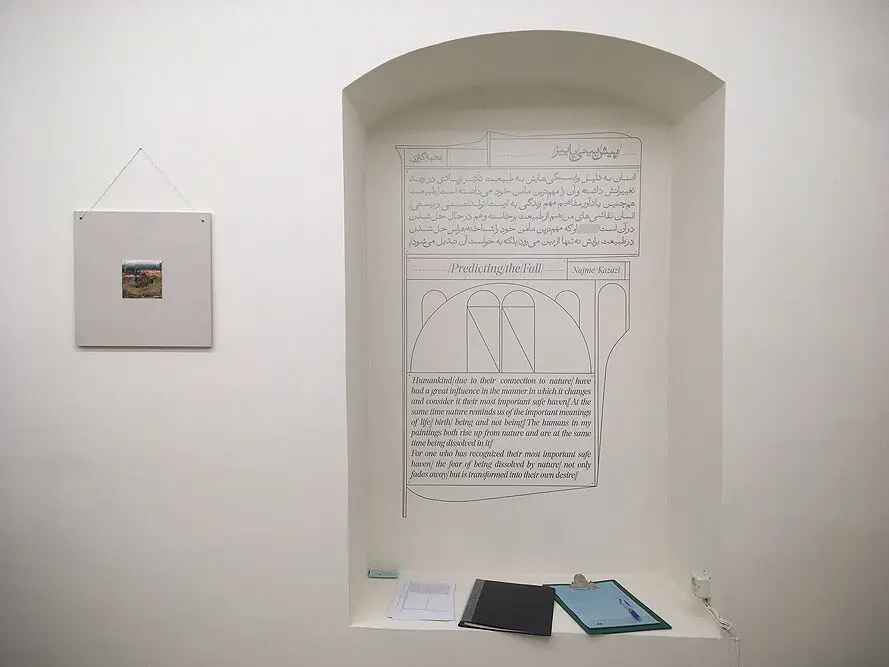 پیش‌بینی پاییز
نجمه کزازی
انسان به دلیل وابستگی‌هایش به طبیعت تاثیر زیادی در روند
تغییراتش داشته و آن را مهم‌ترین مامن خود می‌دانسته است/ طبیعت
هم‌چنین یادآور مفاهیم مهم زندگی به اوست/ تولد، هستی و نیستی/
انسان نقاشی‌های من هم از طبیعت برخاسته و هم در حال حل شدن
در آن است او که مهم‌ترین مامن خود را شناخته هراس حل شدن
در طبیعت برایش نه تنها از بین می‌رود، بلکه به خواست آن تبدیل می‌شود/
/Predicting/the/Fall/
Najme Kazazi
Humankind/due to their connection to nature/ have
had a great influence in the manner in which it changes
and consider it their most important safe haven/ At the
same time nature reminds us of the important meanings
of life/ birth/ being and not being/ The humans in my
paintings both rise up from nature and are at the same
time being dissolved in it/
For one who has recognized their most important safe
haven/ the fear of being dissolved by nature/ not only
fades away/ but is transformed into their own desire/